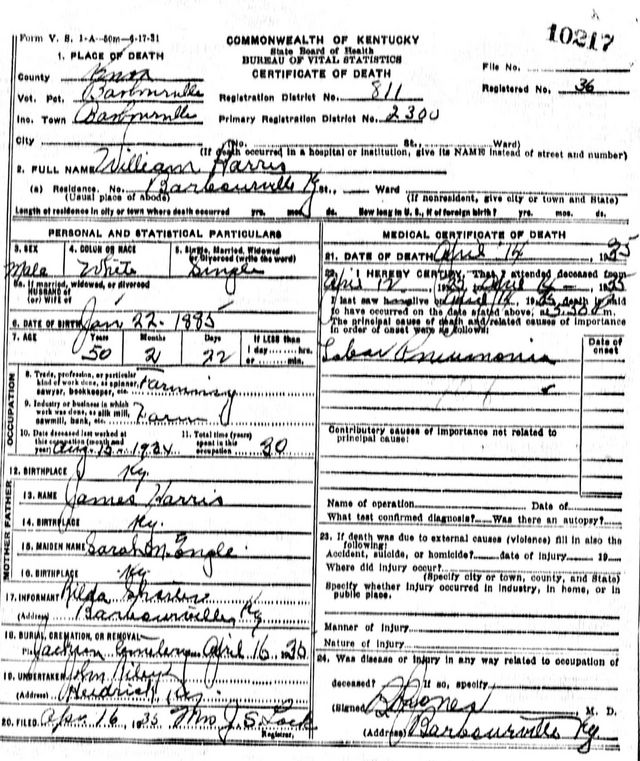 Form V. S. 1-A—50m—6-17-31
COMMONWEALTH OF KENTUCKY
State Board of Health
BUREAU OF VITAL STATISTICS
CERTIFICATE OF DEATH
10217
File No.
Registered No. 36
1. PLACE OF DEATH
County Knox
Vot. Pct. Barbourville
Registration District No. 811
Inc. Town Barbourville
Primary Registration District No. 2300
City (No. St., Ward)
(If death occurred in a hospital or institution, give its NAME instead of street and number)
2. FULL NAME William Harris
(a) Residence. No. Barbourville Ky St., Ward
(Usual place of abode) (If nonresident, give city or town and State)
Length of residence in city or town where death occurred yrs. mos. ds. How long in U. S., if of foreign birth? yrs. mos. ds.
PERSONAL AND STATISTICAL PARTICULARS
3. SEX Male
4. COLOR OR RACE White
5. Single, Married, Widowed or Divorced (write the word) Single
5a. If married, widowed, or divorced
HUSBAND of
(or) WIFE of
6. DATE OF BIRTH Jan 22-1885
7. AGE Years Months Days If LESS than
50 2 22 1 day hrs.
or min.
OCCUPATION
8. Trade, profession, or particular
kind of work done, as spinner,
sawyer, bookkeeper, etc. Farming
9. Industry or business in which
work was done, as silk mill,
sawmill, bank, etc. Farm
10. Date deceased last worked at
this occupation (month and
year) Aug 15 - 1934
11. Total time (years)
spent in this
occupation 30
12. BIRTHPLACE Ky.
MOTHER FATHER
13. NAME James Harris
14. BIRTHPLACE Ky.
15. MAIDEN NAME Sarah M. Engle
16. BIRTHPLACE Ky
17. INFORMANT
(Address) Barbourville, Ky
18. BURIAL, CREMATION, OR REMOVAL
Jackson April 16 1935
19. UNDERTAKER John
(Address) Heidrick Ky
20. FILED Apr 16 1935 Mrs J. S.
Registrar.
MEDICAL CERTIFICATE OF DEATH
21. DATE OF DEATH April 14, 1935
22. I HEREBY CERTIFY, That I attended deceased from
April 12, 1935, to April 1935
I last saw him alive on April 1935, death is said
to have occurred on the date stated above, at m.
The principal cause of death and related causes of importance
in order of onset were as follows:
Date of
onset
Lobar Pneumonia
Contributory causes of importance not related to
principal cause:
Name of operation Date of
What test confirmed diagnosis? Was there an autopsy?
23. If death was due to external causes (violence) fill in also the
following:
Accident, suicide, or homicide? date of injury 19
Where did injury occur?
(Specify city or town, county, and State)
Specify whether injury occurred in industry, in home, or in
public place.
Manner of injury
Nature of injury
24. Was disease or injury in any way related to occupation of
deceased? If so, specify
(Signed) Jones M. D.
(Address) Barbourville Ky